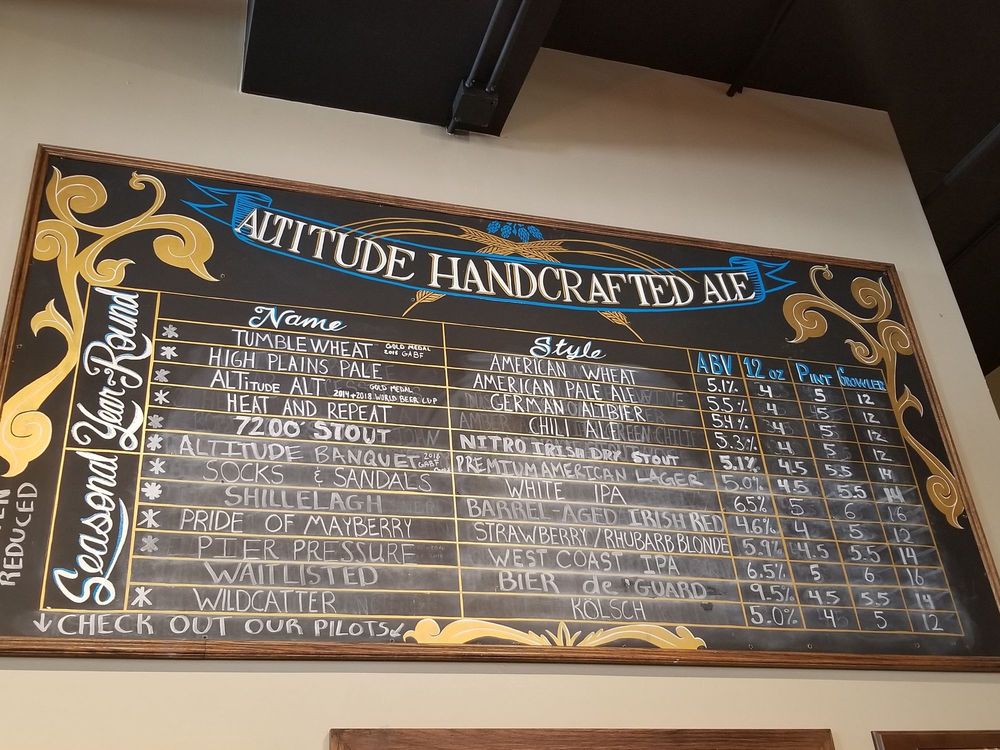 ALTITUDE HANDCRAFTED ALE
Name Style ABV 12 oz PINT GROWLER
Year-Round
* TUMBLEWHEAT GOLD MEDAL GABF AMERICAN WHEAT 5.1% 4 5 12
* HIGH PLAINS PALE AMERICAN PALE ALE 5.5% 4 5 12
* ALTITUDE ALT GOLD MEDAL 2014+2018 WORLD BEER CUP GERMAN ALTBIER 5.4% 4 5 12
* HEAT AND REPEAT CHILI ALE 5.3% 4 5 12
* 7200' STOUT NITRO IRISH DRY STOUT 5.1% 4.5 5.5 14
Seasonal
* ALTITUDE BANQUET GABF PREMIUM AMERICAN LAGER 5.0% 4.5 5.5 14
* SOCKS & SANDALS WHITE IPA 6.5% 5 6 16
* SHILLELAGH BARREL-AGED IRISH RED 4.6% 4 5 12
* PRIDE OF MAYBERRY STRAWBERRY/RHUBARB BLONDE 5.9% 4.5 5.5 14
* PIER PRESSURE WEST COAST IPA 6.5% 5 6 16
WAITLISTED BIER de GUARD 9.5% 4.5 5.5 14
* WILDCATTER KOLSCH 5.0% 4 5 12
↓ CHECK OUT OUR PILOTS ↓
REDUCED